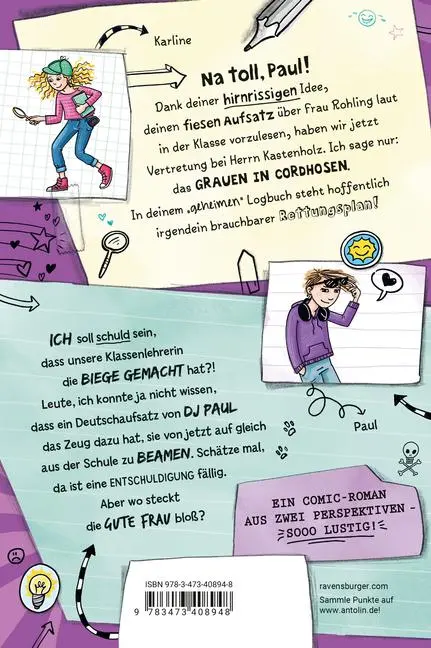 Karline
Na toll, Paul!
Dank deiner hirnrissigen Idee,
deinen fiesen Aufsatz über Frau Rohling laut
in der Klasse vorzulesen, haben wir jetzt
Vertretung bei Herrn Kastenholz. Ich sage nur:
das GRAUEN IN CORDHOSEN.
In deinem „geheimen“ Logbuch steht hoffentlich
irgendein brauchbarer Rettungsplan!
ICH soll schuld sein,
dass unsere Klassenlehrerin
die BIEGE GEMACHT hat?!
Leute, ich konnte ja nicht wissen,
dass ein Deutschaufsatz von DJ PAUL
das Zeug dazu hat, sie von jetzt auf gleich
aus der Schule zu BEAMEN. Schätze mal,
da ist eine ENTSCHULDIGUNG fällig.
Aber wo steckt
die GUTE FRAU bloß?
Paul
EIN COMIC-ROMAN
AUS ZWEI PERSPEKTIVEN –
SOOO LUSTIG!
ISBN 978-3-473-40894-8
9 783473 408948
ravensburger.com
Sammle Punkte auf
www.antolin.de!